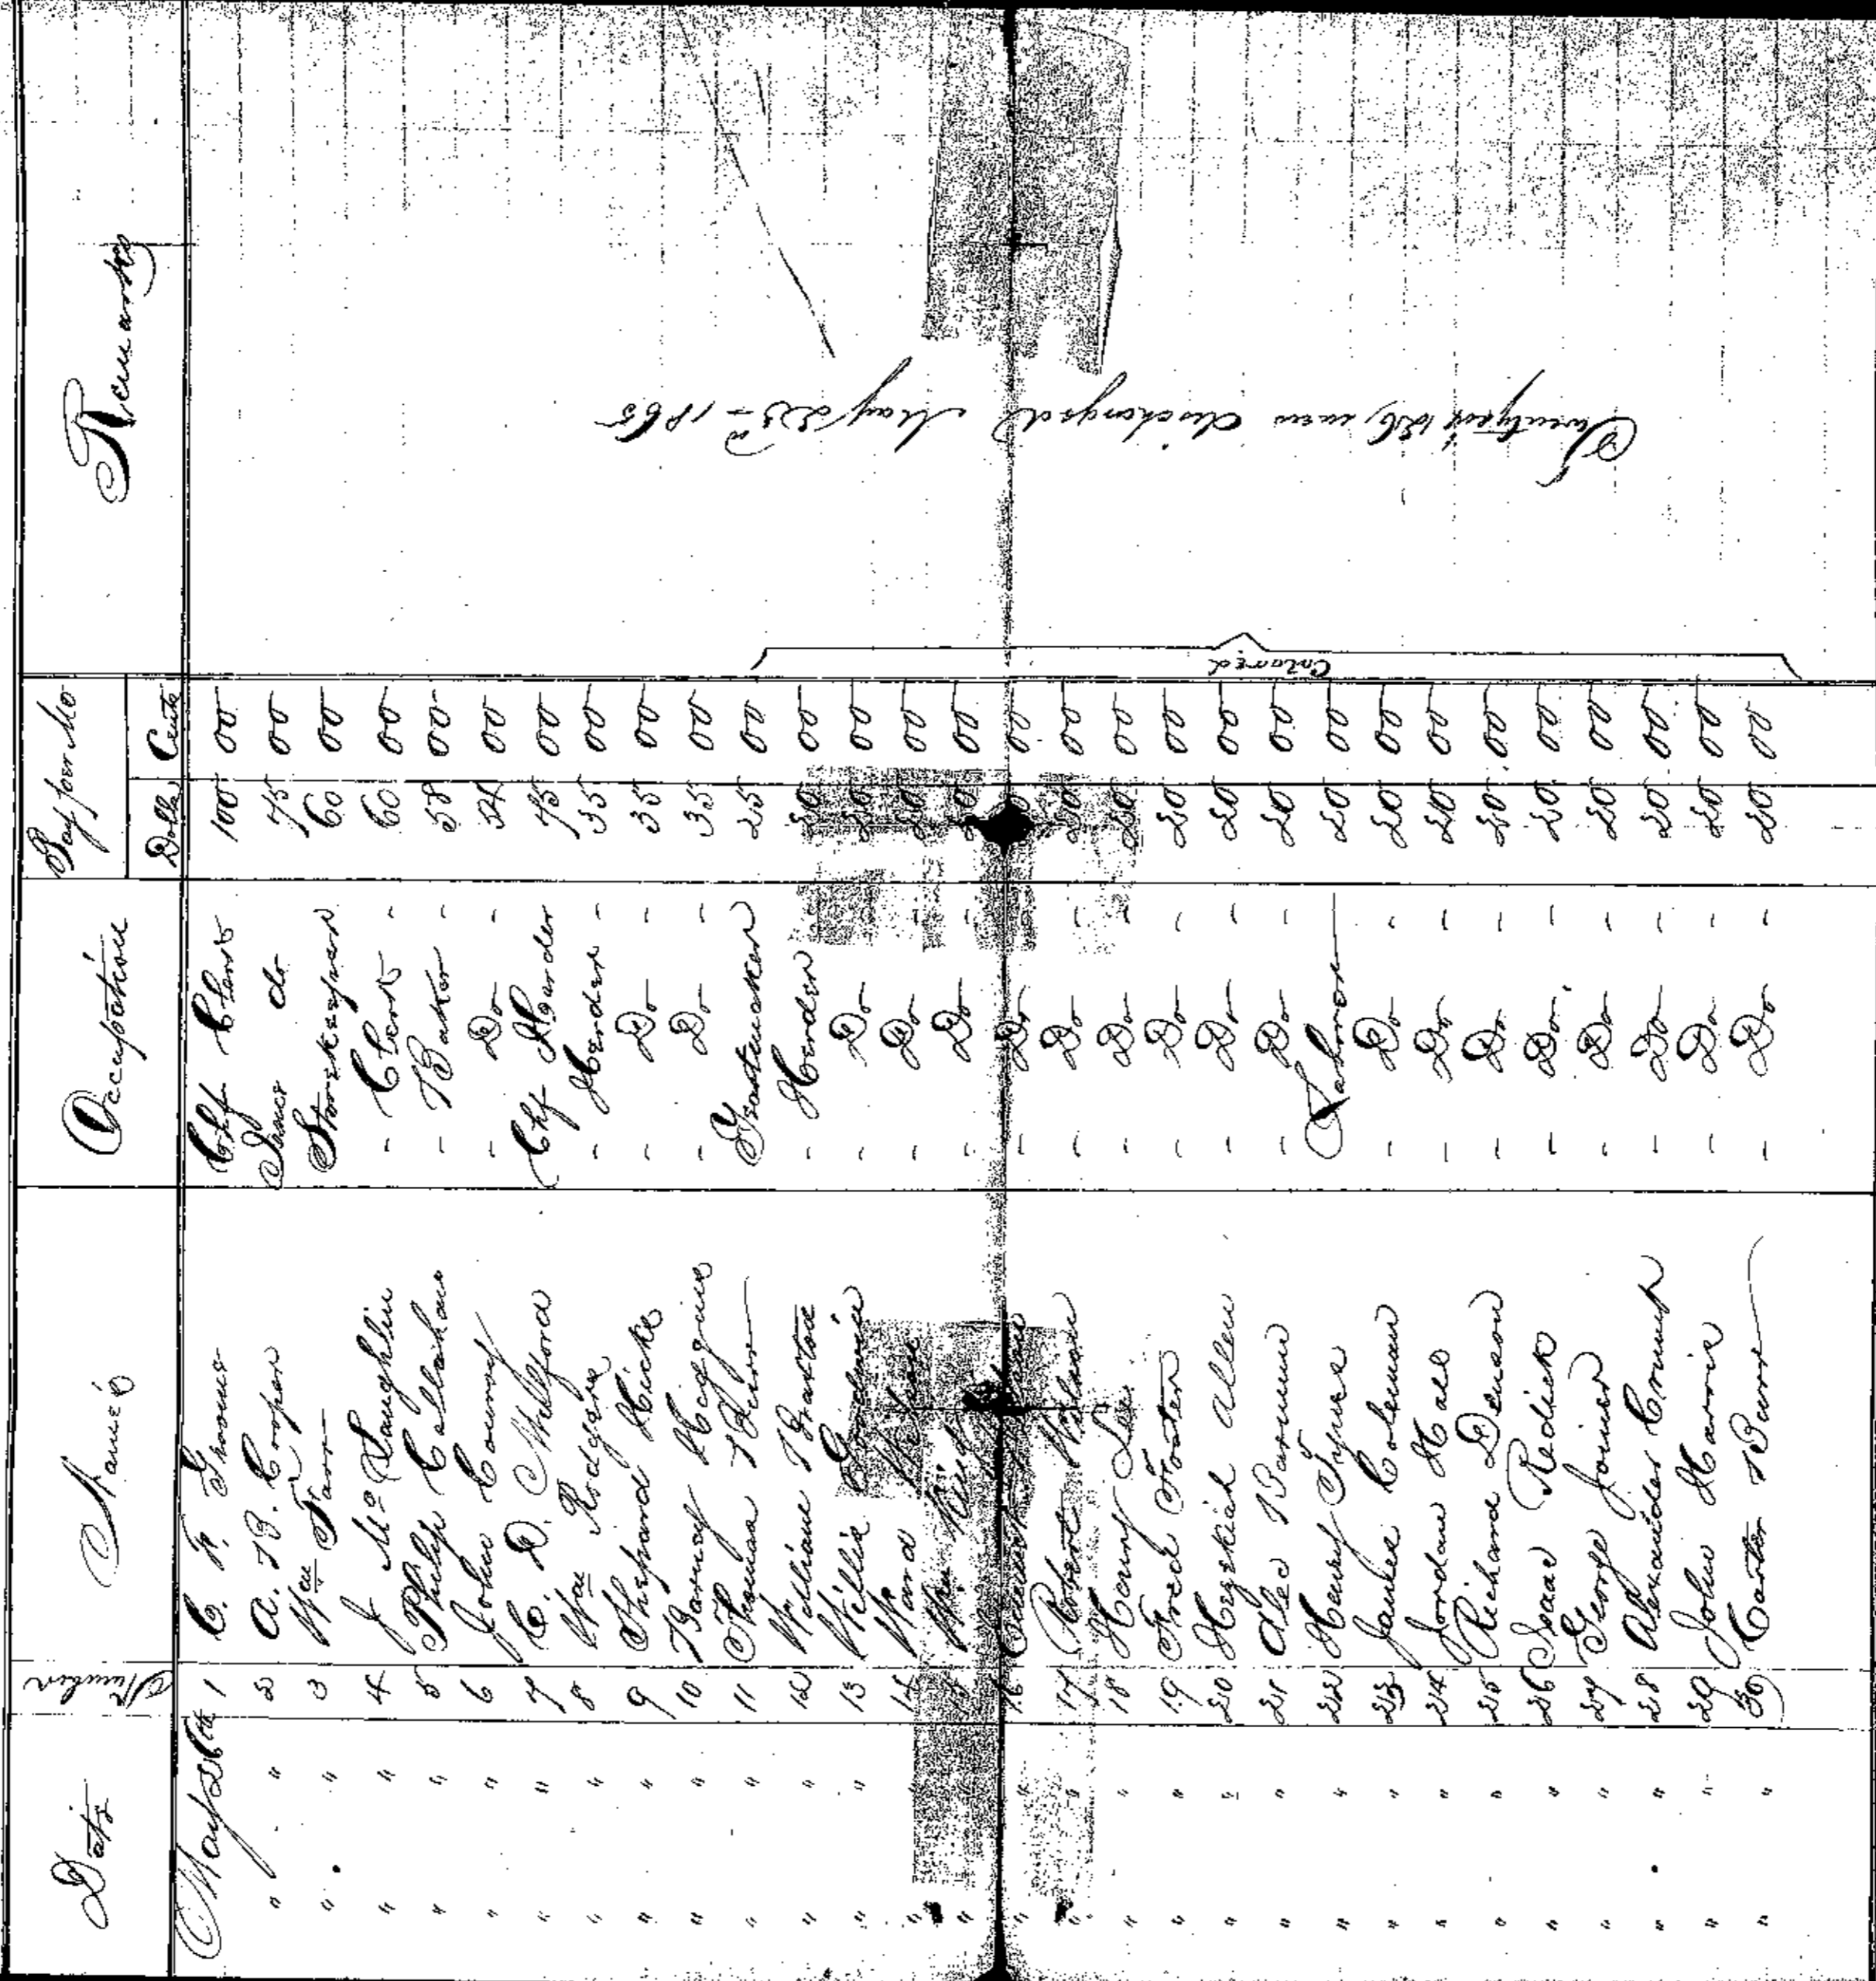 Date Number Names Occupation Pay per Mo Remarks
Dolls Cents
May 26th 1 C. F. Chf Clerk 100 00
" " 2 A. B. Cooper Issue do 75 00
" " 3 Wm Farr Storekeeper 60 00
" " 4 J McLaughlin - Clerk - 60 00
" " 5 Philip Callahan - Baker - 58 00
" " 6 John Conroy - Do - 00
" " 7 C. D. Millford Chf Herder 75 00
" " 8 Wm Rodgers - Herder - 35 00
" " 9 Shepard Hicks - Do - 35 00
" " 10 Barney Higgins - Do - 35 00
" " 11 Thomas Teamster 25 00
" " 12 William Braxton - Herder 20 00
" " 13 Willis - Do - 20 00
" " 14 Ward - Do - 20 00
" " 15 Wm - Do - 20 00
" " 16 - Do - 20 00
" " 17 Robert Nelson - Do - 20 00
" " 18 Henry Lee - Do - 20 00
" " 19 Fred Foster - Do - 20 00
" " 20 Hezekiah Allen - Do - 20 00
" " 21 Alec Barnum - Do - 20 00
" " 22 Henry Laborer 20 00
" " 23 James Coleman - Do - 20 00
" " 24 Jordan Hall - Do - 20 00
" " 25 Richard Denson - Do - 20 00
" " 26 Isaac Redick - Do - 20 00
" " 27 George Joiner - Do - 20 00
" " 28 Alexander Crump - Do - 20 00
" " 29 John Harris - Do - 20 00
" " 30 Carter Burr - Do - 20 00
Colored
Twentysix (26) men discharged May 1865